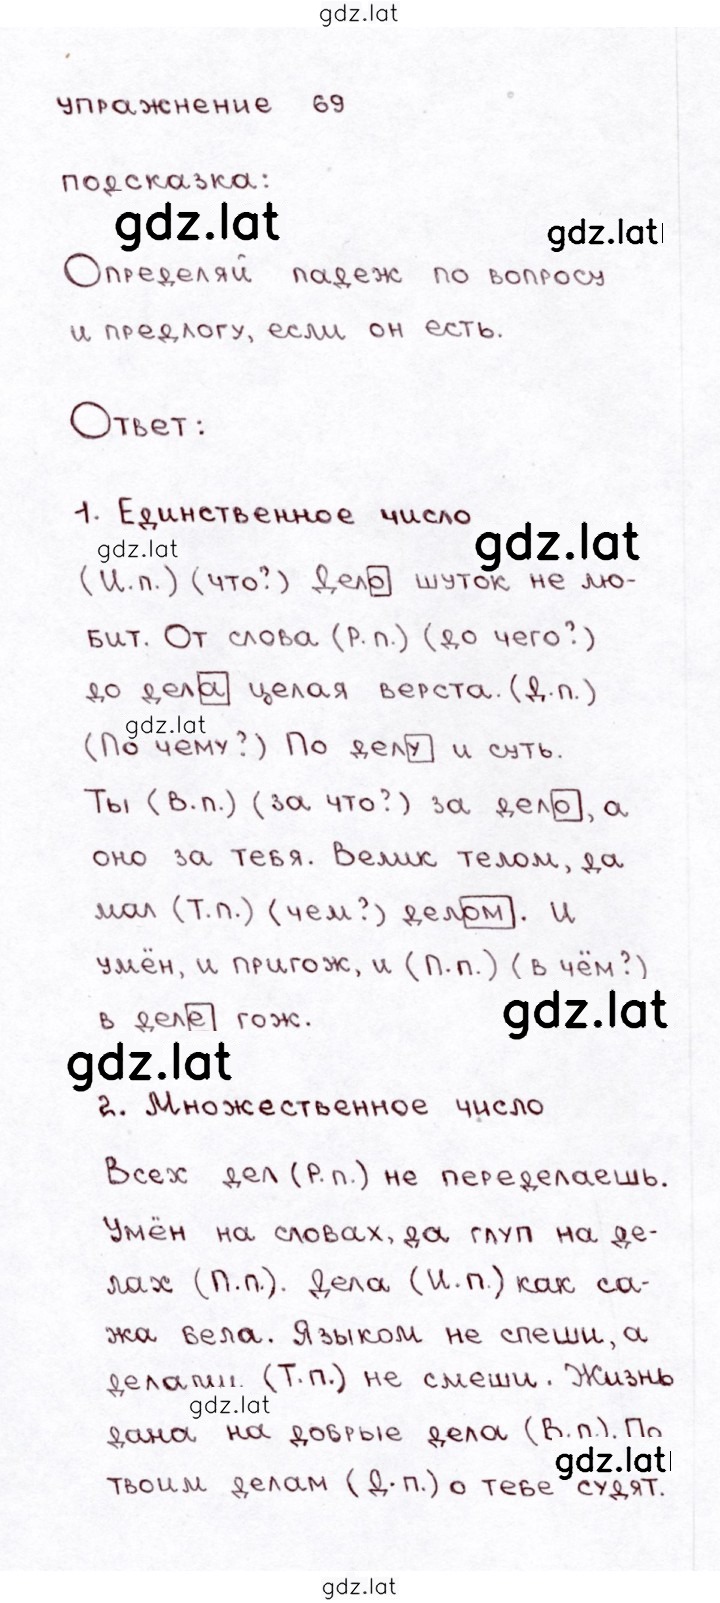 gdz.lat
упражнение 69
подсказка:
gdz.lat
gdz.lat
Определяй падеж по вопросу
и предлогу, если он есть.
Ответ:
1. Единственное число
gdz.lat
gdz.lat
(И.п.) (что?) Дело шуток не лю-
бит. От слова (Р.п.) (до чего?)
до дела целая верста. (Д.п.)
gdz.lat
(По чему?) По делу и суть.
Ты (В.п.) (за что?) за дело, а
оно за тебя. Велик телом, да
мал (Т.п.) (чем?) делом. И
умён, и пригож, и (П.п.) (в чём?)
в деле гож.
gdz.lat
gdz.lat
2. Множественное число
Всех дел (Р.п.) не переделаешь.
Умён на словах, да глуп на де-
лах (П.п.). Дела (И.п.) как са-
жа бела. Языком не спеши, а
делами (Т.п.) не смеши. Жизнь
gdz.lat
дана на добрые дела (В.п.). По
gdz.lat
твоим делам (Д.п.) о тебе судят.
gdz.lat